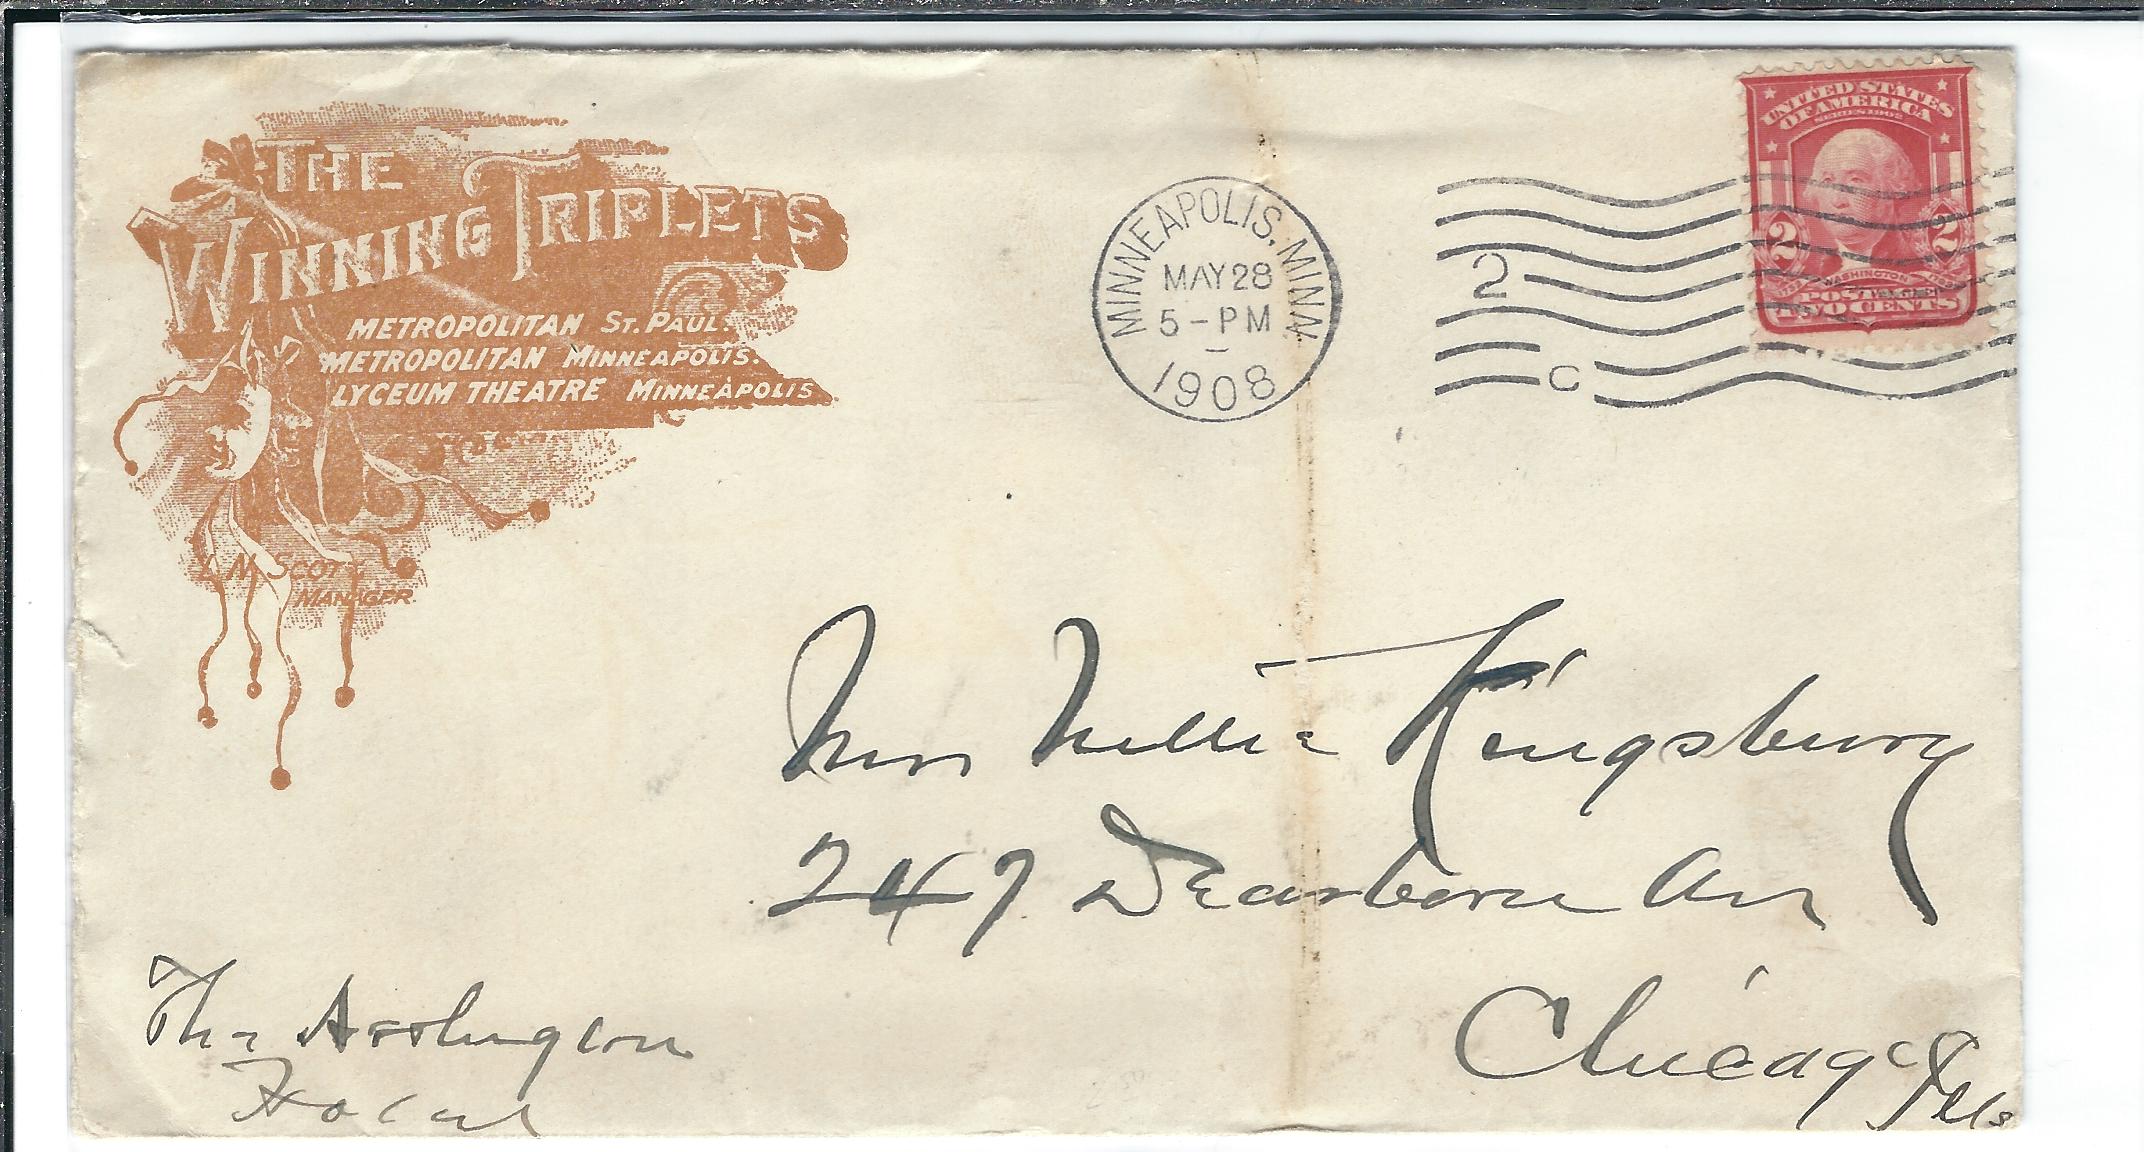 THE
WINNING TRIPLETS
METROPOLITAN ST. PAUL.
METROPOLITAN MINNEAPOLIS.
LYCEUM THEATRE MINNEAPOLIS
L. N. SCOTT
MANAGER.
MINNEAPOLIS, MINN.
MAY 28
5 - PM
1908
2
C
UNITED STATES
OF AMERICA
SERIES 1902
2 2
WASHINGTON
POSTAGE
TWO CENTS
Miss Nellie Kingsbury
247 Dearborn Av
Chicago Ills
The
Hotel